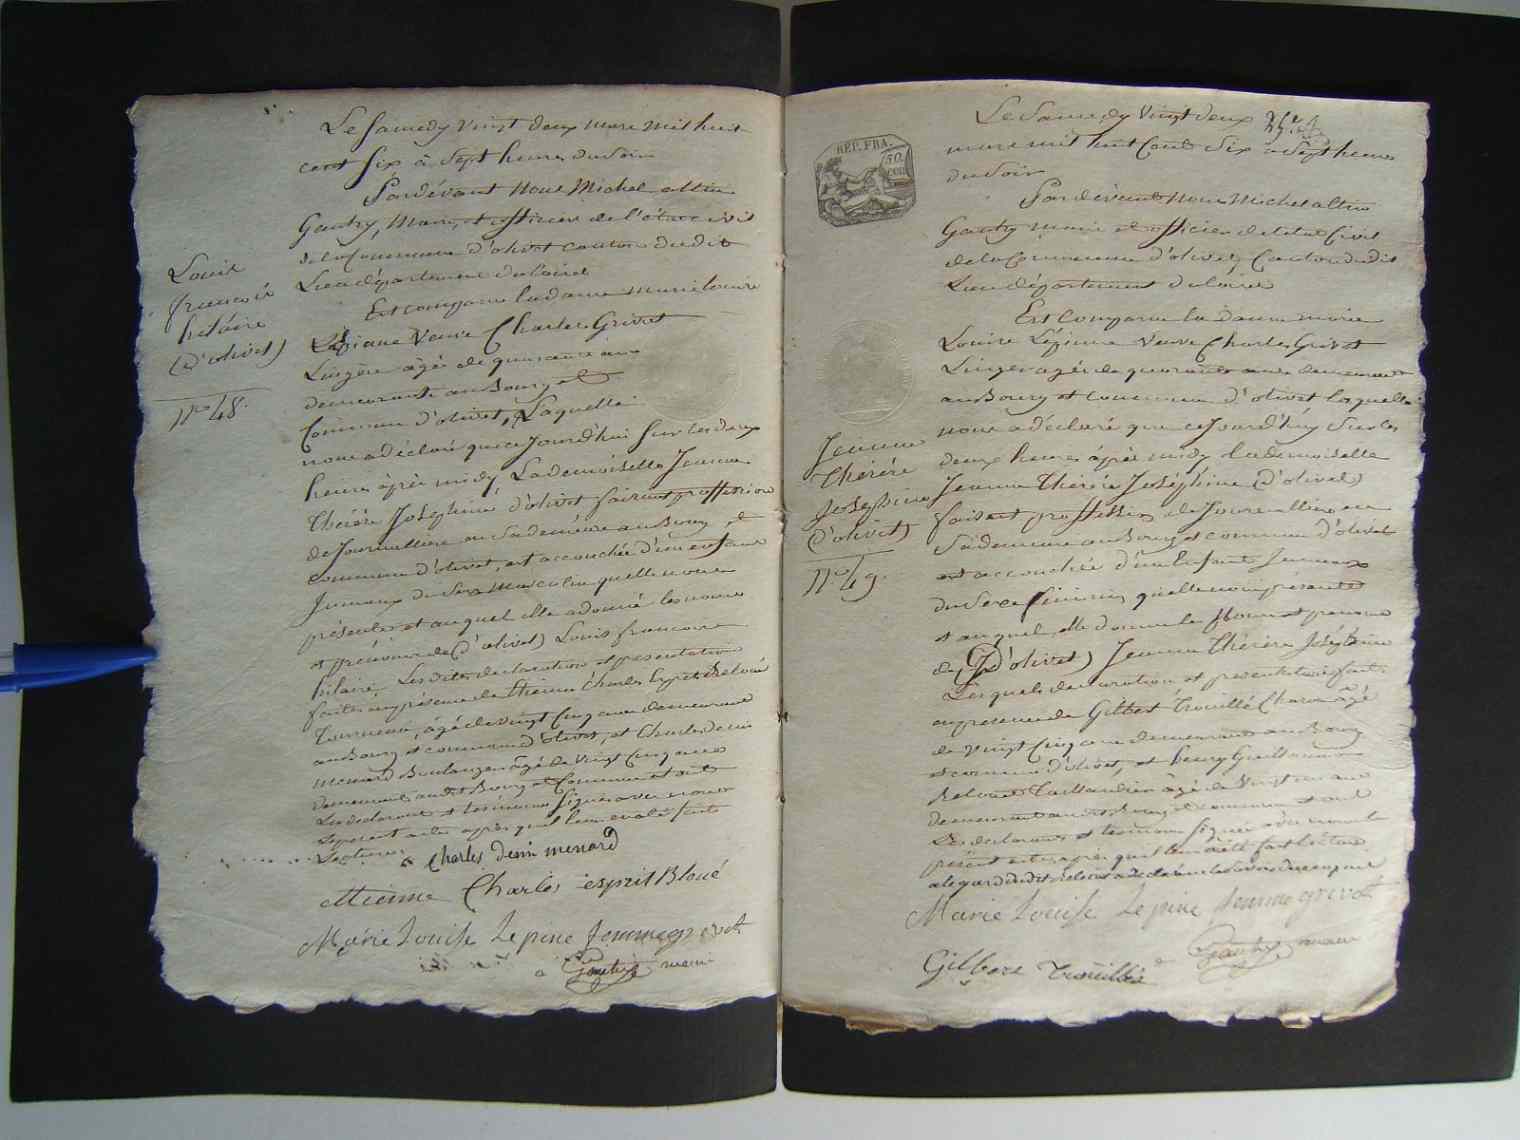 Le Samedy vingt deux mars mil huit
cent Six à Sept heures du Soir
Pardévant Nous Michel altin
Gautry, Maire, et officier de l'état civil
de la Commune d'olivet canton dudit
Lieu département du loiret
Est comparu la dame marie louise
Lépinne Veuve Charles Grivot
Lingère agée de quarante ans
demeurante au Bourg et
Commune d'olivet, Laquelle
nous a déclaré que ce Jourd'hui Sur les deux
heures après midy La demoiselle Jeanne
Thérèse Joséphine d'olivet faisant proffession
de Journallière en Sa demeure au Bourg et
commune d'olivet, est accouchée d'un enfant
Jumeaux du Sexe Masculin quelle nous
présente et auquel elle a donné les noms
et prénoms de (d'olivet) Louis françois
hilaire. Les dites declaration et présentation
faites en présence de Etienne Charles Esprit Bloué
Tourneur, âgé de vingt Cinq ans demeurant
au Bourg et commune d'olivet, et Charles Denis
menard Boulanger âgé de vingt Cinq ans
demeurant audit Bourg et Commune et ont
Les déclarant et témoins Signés avec nous
le présent acte après quil leur en a été fait
Lecture
Charles Denis menard
Etienne Charles esprit Bloué
Marie Louise Lepine femme grivot
Gautry maire
Louis
françois
hilaire
(d'olivet)
N.o 48.
REP. FRA.
50.
CEN.
Le Samedy Vingt deux
mars mil huit Cent Six à Sept heures
du Soir
Pardévant Nous Michel altin
Gautry maire et officier de l'état Civil
de la Commune d'olivet, Canton dudit
Lieu département du loiret
Est Comparu la Dame marie
Louise Lépinne Veuve Charles Grivot
Lingère agée de quarante ans demeurant
au Bourg et commune d'olivet laquelle
nous a déclaré que ce Jourd'huy Sur les
deux heures après midy la demoiselle
Jeanne Thérèse Joséphine (d'olivet)
faisant proffession de Journallière en
Sa demeure au Bourg et commune d'olivet
est accouchée d'un Enfant Jumeaux
du Sexe féminin quelle nous présente
et auquel elle donne le Nom et prenoms
de (d'olivet) Jeanne Thérèse Joséphine
Les quels declaration et presentation faites
en presence de Gilbert Trouillé Charon âgé
de Vingt Cinq ans demeurant au Bourg
et commune d'olivet, et
âgé de Vingt
demeurant audit Bourg et commune et ont
Les declarant et temoins Signé avec nous le
présent acte après quil leur a été fait lecture
Marie Louise Lepine femme grivot
Gautry maire
Gilbert Trouillé
Jeanne
Thérèse
Joséphine
(d'olivet)
N.o 49.